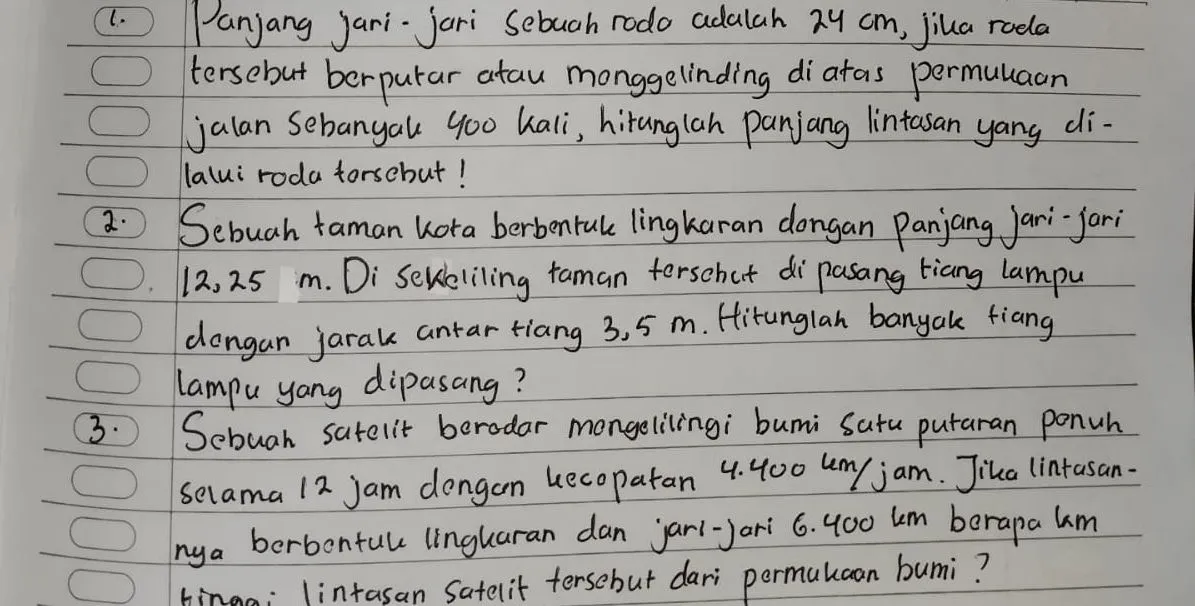 1. Panjang jari-jari sebuah roda adalah 24 cm, jika roda
tersebut berputar atau menggelinding di atas permukaan
jalan sebanyak 400 kali, hitunglah panjang lintasan yang di-
lalui roda tersebut!
2. Sebuah taman kota berbentuk lingkaran dengan panjang jari-jari
12,25 m. Di sekeliling taman tersebut di pasang tiang lampu
dengan jarak antar tiang 3,5 m. Hitunglah banyak tiang
lampu yang dipasang?
3. Sebuah satelit beredar mengelilingi bumi satu putaran penuh
selama 12 jam dengan kecepatan 4.400 km/jam. Jika lintasan-
nya berbentuk lingkaran dan jari-jari 6.400 km berapa km
tinggi lintasan satelit tersebut dari permukaan bumi?